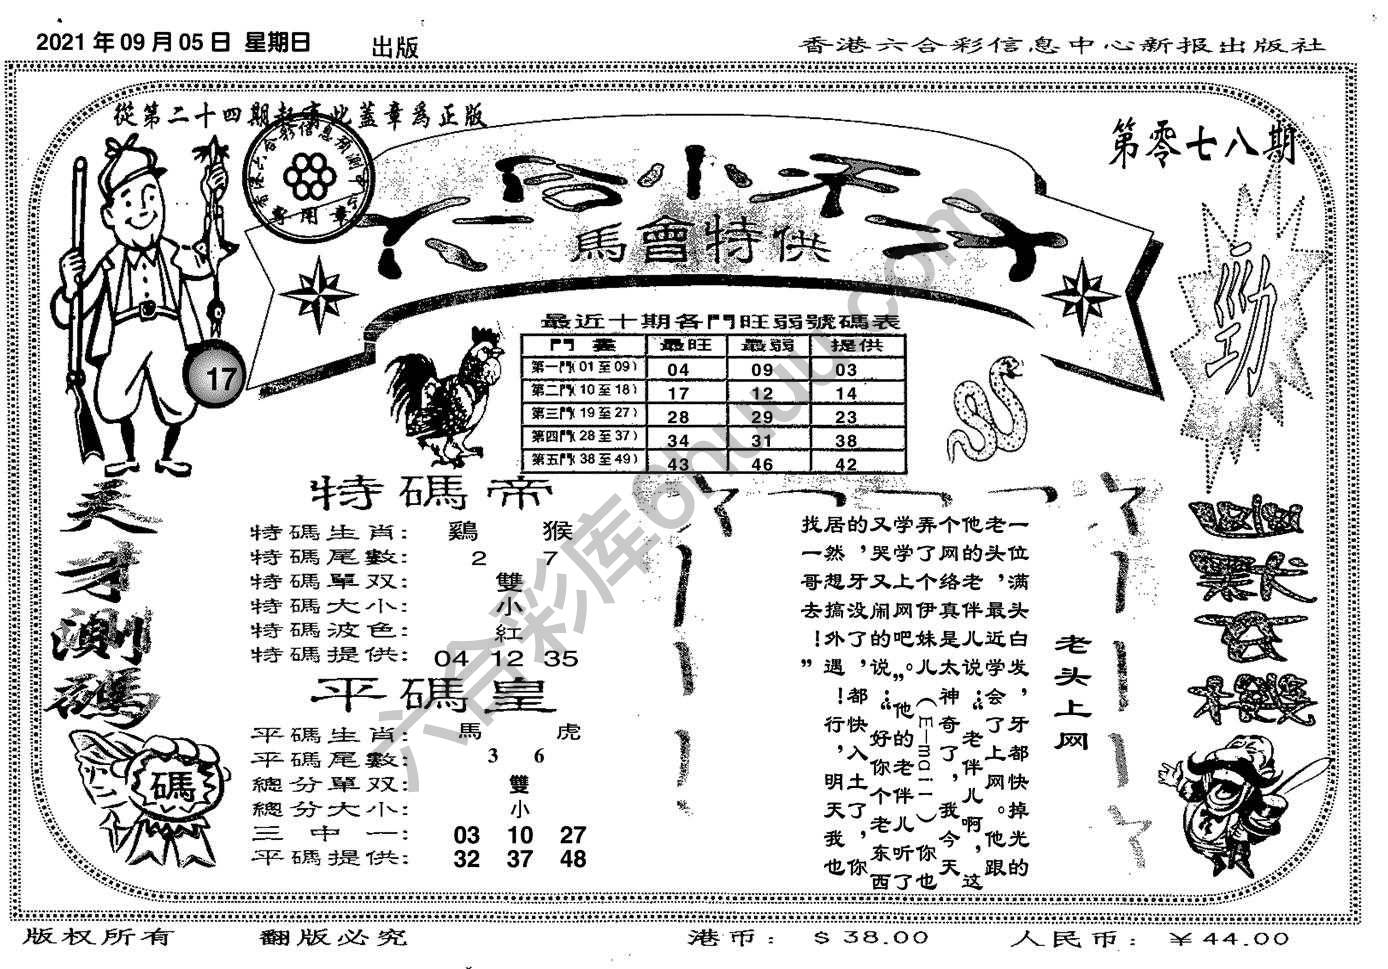 2021 年 09 月 05 日 星期日
出版
香港六合彩信息中心新报出版社
從第二十四期起寄此蓋章爲正版
专用章
第零七八期
六合小天才
馬會特供
勁
17
最近十期各門旺弱號碼表
門 最旺 最弱 提供
第一門( 01 至 09) 04 09 03
第二門( 10 至 18) 17 12 14
第三門( 19 至 27) 28 29 23
第四門( 28 至 37) 34 31 38
第五門( 38 至 49) 43 46 42
天才測碼
碼
特碼帝
特碼生肖: 鷄 猴
特碼尾數: 2 7
特碼單双: 雙
特碼大小: 小
特碼波色: 紅
特碼提供: 04 12 35
平碼皇
平碼生肖: 馬 虎
平碼尾數: 3 6
總分單双: 雙
總分大小: 小
三中一: 03 10 27
平碼提供: 32 37 48
老头上网
一位满头白发，牙都快掉光的
老头，最近学会了上网。他跟
他的老伴儿说：“老伴儿啊，这
个网络真是太神奇了，我今天
弄了个伊妹儿（E—mail）你也
学学上网吧。”他的老伴儿听了
又哭又闹的说：“好你个老东西
的，牙没了，都快入土了，你
居然想搞外遇！行，明天我也
找一哥去！”
六合彩库6huu.com
版权所有 翻版必究 港币： $ 38.00 人民币：￥44.00